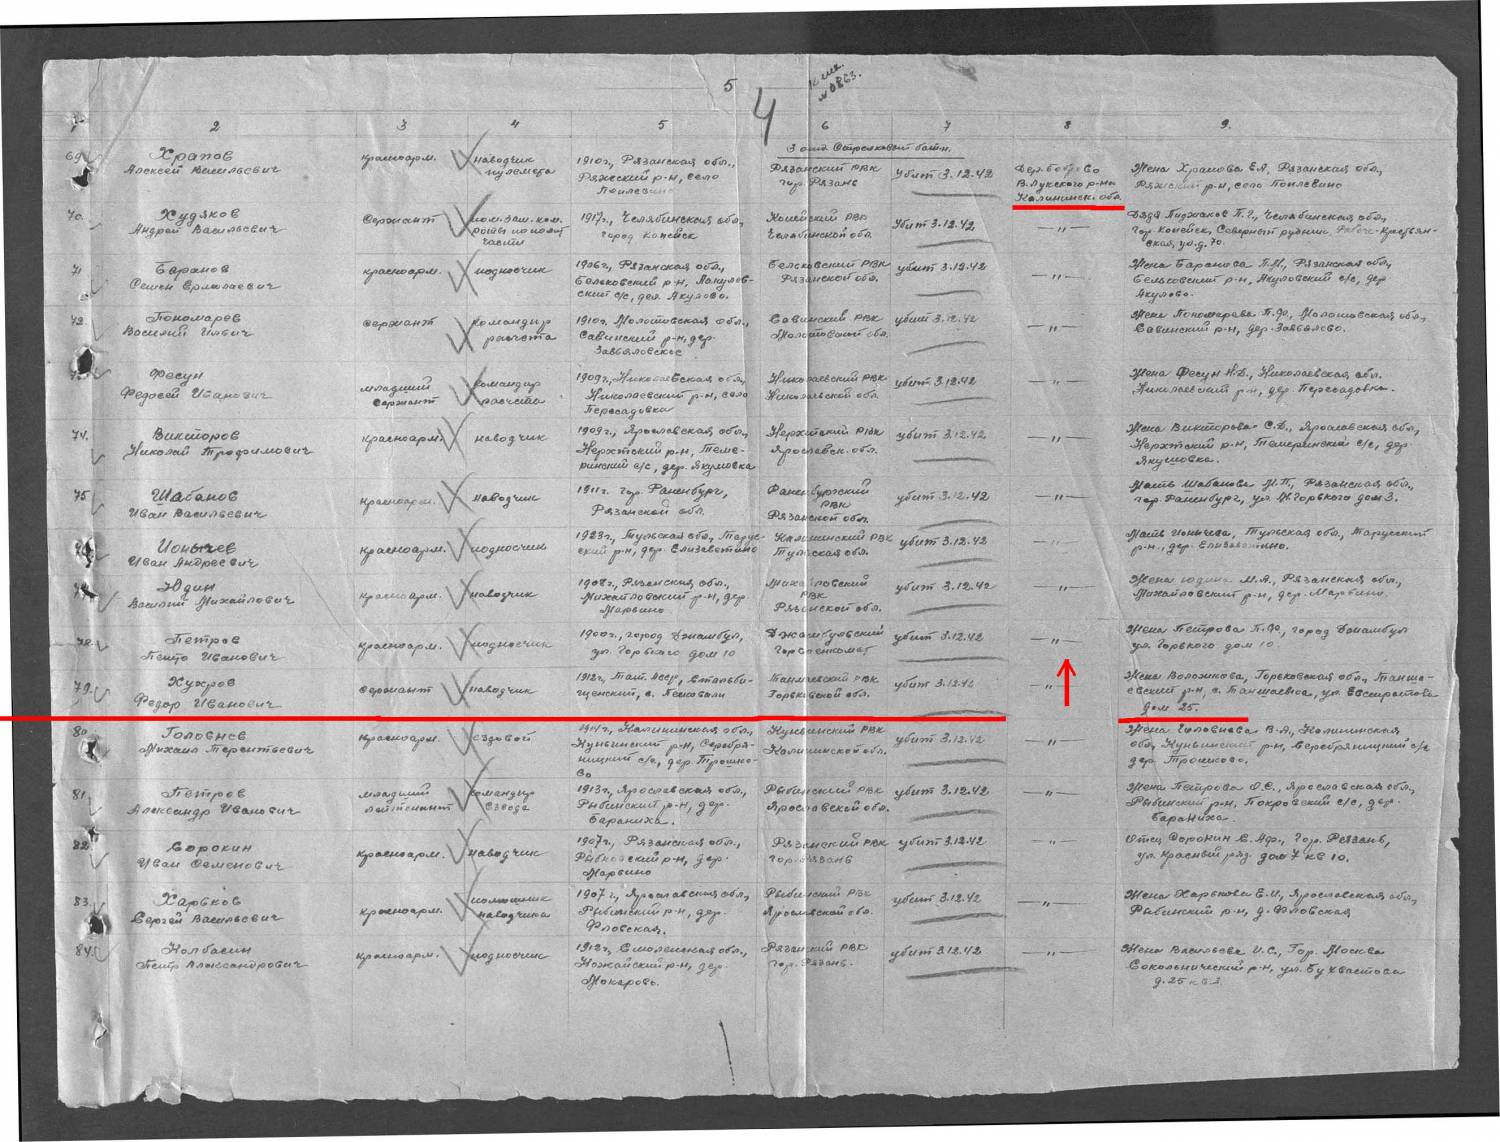 5
4
№ 0863.
1 2 3 4 5 6 7 8 9.
3 отд. Стрелковый батн.
69. Храпов
Алексей Васильевич
красноарм.
наводчик
пулемета
1910г., Рязанская обл.,
Ряжский р-н, село
Поплевино
Рязанский РВК
гор. Рязань
убит 3.12.42
Дер. Боброво
В.Лукского р-на
Калининск. обл.
Жена Храпова Е.А, Рязанская обл,
Ряжский р-н, село Поплевино
70. Худяков
Андрей Васильевич
сержант
пом. зам. ком.
роты по полит
части
1917г., Челябинская обл,
город Копейск
Копейский РВК
Челябинской обл.
Убит 3.12.42
—"—
Дядя П.Г., Челябинская обл,
гор. Копейск, Северный рудник,
ская, ул. д. 70.
71 Баранов
Семен Ермолаевич
красноарм.
подносчик
1906г., Рязанская обл.,
Бельковский р-н,
ский с/с, дер. Акулово.
Бельковский РВК
Рязанской обл.
убит 3.12.42
—"—
Жена Баранова П.М., Рязанская обл,
Бельковский р-н, Акуловский с/с, дер
Акулово.
72. Пономарев
Василий Ильич
сержант
командир
расчета
1910г., Молотовская обл.,
Савинский р-н, дер.
Савинский РВК
Молотовской обл.
убит 3.12.42
—"—
Жена Пономарева П.Ф., Молотовская обл,
Савинский р-н, дер.
73. Фесун
Федосей Иванович
младший
сержант
командир
расчета
1909г., Николаевская обл,
Николаевский р-н, село
Пересадовка
Николаевский РВК
Николаевской обл.
убит 3.12.42
—"—
Жена Фесун Н.Д., Николаевская обл.
Николаевский р-н, дер. Пересадовка.
74. Викторов
Николай Трофимович
красноарм.
наводчик
1909г., Ярославская обл.,
Нерехтский р-н, Теме-
ринский с/с, дер. Якумовка
Нерехтский РВК
Ярославск. обл.
убит 3.12.42
—"—
Жена Викторова С.Д., Ярославская обл,
Нерехтский р-н, Темеринский с/с, дер.
Якумовка.
75 Шабанов
Иван Васильевич
красноарм.
наводчик
1911г. гор. Раненбург,
Рязанской обл.
Раненбургский
РВК
Рязанской обл.
убит 3.12.42
—"—
Мать Шабанова М.П., Рязанская обл,
гор. Раненбург, ул. М.Горького дом 3.
76. Ионычев
Иван Андреевич
красноарм.
подносчик
1923г., Тульская обл, Тарус-
ский р-н, дер. Елизаветино
Калининский РВК
Тульская обл.
убит 3.12.42
—"—
Мать Ионычева, Тульская обл, Тарусский
р-н., дер. Елизаветино.
77. Юдин
Василий Михайлович
красноарм.
наводчик
1908г., Рязанская обл,
Михайловский р-н, дер.
Марвино
Михайловский
РВК
Рязанской обл.
убит 3.12.42
—"—
Жена Юдина М.А., Рязанская обл,
Михайловский р-н, дер. Марвино.
78. Петров
Петр Иванович
красноарм.
подносчик
1900г., город Джамбул,
ул. Горького дом 10
Джамбулский
Горвоенкомат
убит 3.12.42
—"—
Жена Петрова П.Ф., город Джамбул
ул. Горького дом 10.
79. Хухров
Федор Иванович
сержант
наводчик
1912г., Тат. АССР,
Тоншаевский РВК
Горьковской обл.
убит 3.12.42
—"—
Жена Воложнова, Горьковская обл, Тонша-
евский р-н, с. Тоншаево, ул.
дом 25.
80. Головнев
Михаил Терентьевич
красноарм.
ездовой
1911г., Калининская обл,
Куньинский р-н, Серебря-
ницкий с/с, дер. Трошко-
во
Куньинский РВК
Калининской обл.
убит 3.12.42
—"—
Жена Головнева В.А., Калининская
обл, Куньинский р-н, Серебряницкий с/с
дер. Трошково.
81. Петров
Александр Иванович
младший
лейтенант
командир
взвода
1913г., Ярославская обл,
Рыбинский р-н, дер.
Бараниха.
Рыбинский РВК
Ярославской обл.
убит 3.12.42
—"—
Жена Петрова О.С., Ярославская обл,
Рыбинский р-н, Покровский с/с, дер.
Бараниха.
82. Сорокин
Иван Семенович
красноарм.
наводчик
1907г., Рязанская обл,
Рыбновский р-н, дер.
Марвино
Рязанский РВК
гор. Рязань
убит 3.12.42
—"—
Отец Сорокин С. Аф., гор. Рязань,
ул. Красный ряд. дом 7 кв 10.
83. Харьков
Сергей Васильевич
красноарм.
помошник
наводчика
1907г., Ярославская обл,
Рыбинский р-н, дер.
Фловская.
Рыбинский РВК
Ярославской обл.
убит 3.12.42
—"—
Жена Харькова Е.И, Ярославская обл,
Рыбинский р-н, д. Фловская
84. Колбасин
Петр Александрович
красноарм.
подносчик
1912г., Смоленская обл,
Можайский р-н, дер.
Макарово.
Рязанский РВК
гор. Рязань.
убит 3.12.42
—"—
Жена Васильева И.С., Гор. Москва
Сокольнический р-н, ул. Бухвастова
д. 25 кв 3.